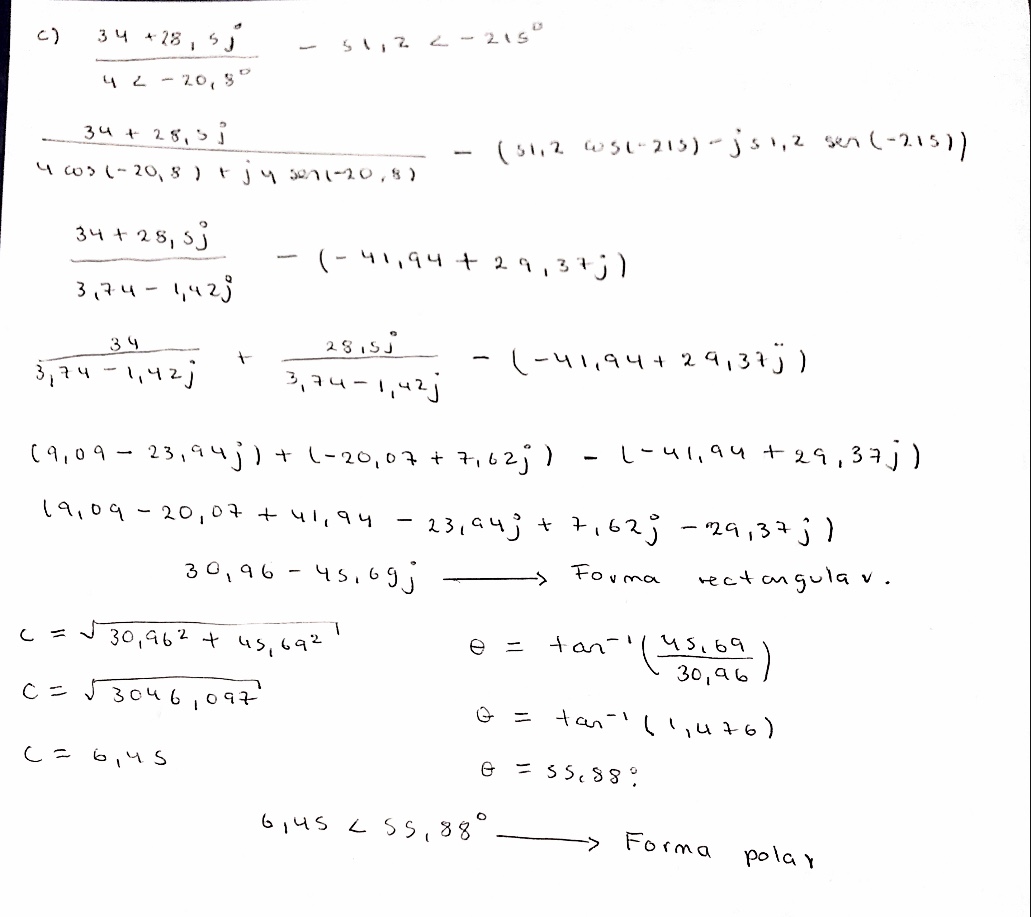 c) (34 + 28,5j) / (4 ∠ -20,8°) - 51,2 ∠ -215°
(34 + 28,5j) / (4 cos(-20,8) + j4 sen(-20,8)) - (51,2 cos(-215) - j51,2 sen(-215))
(34 + 28,5j) / (3,74 - 1,42j) - (-41,94 + 29,37j)
34 / (3,74 - 1,42j) + 28,5j / (3,74 - 1,42j) - (-41,94 + 29,37j)
(9,09 - 23,94j) + (-20,07 + 7,62j) - (-41,94 + 29,37j)
(9,09 - 20,07 + 41,94 - 23,94j + 7,62j - 29,37j)
30,96 - 45,69j → Forma rectangular.
c = √(30,96² + 45,69²) θ = tan⁻¹(45,69 / 30,96)
c = √3046,097 θ = tan⁻¹(1,476)
c = 6,45 θ = 55,88°
6,45 ∠ 55,88° → Forma polar